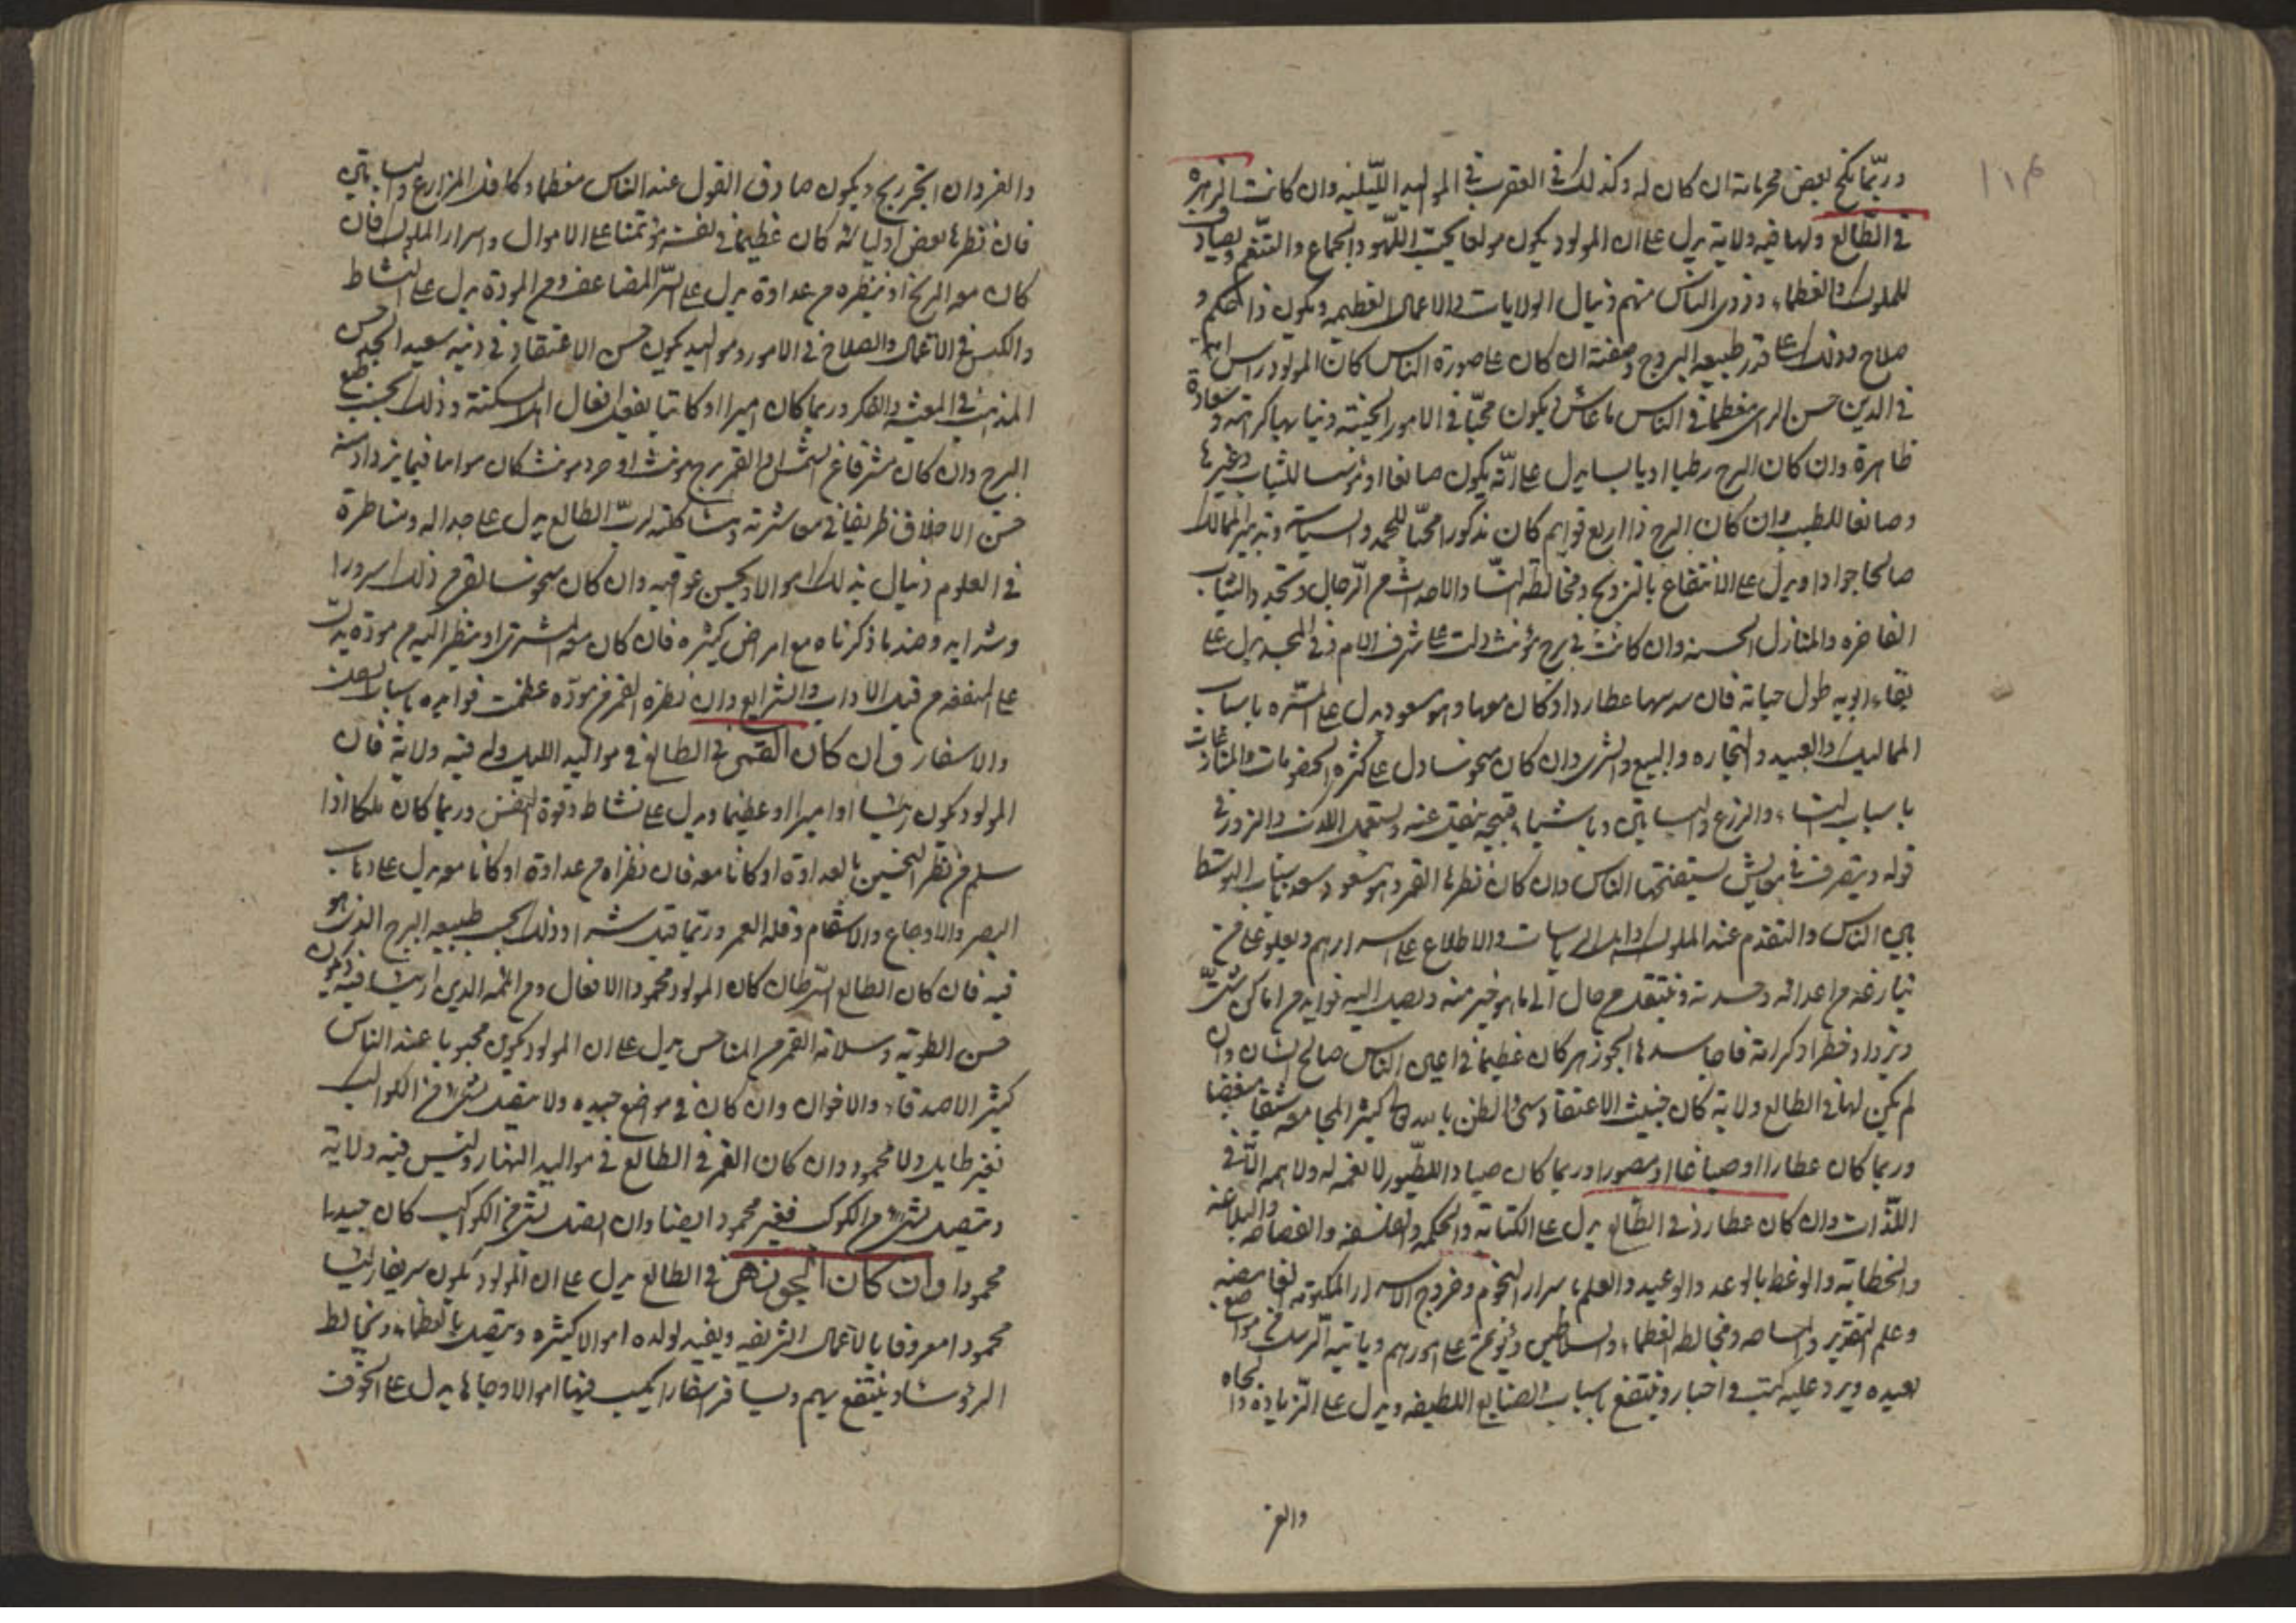 ١١٤
وربما نكح بعض محرماته ان كان له وكذلك في العقرب في المواليد الليلية وان كانت الزهرة
في الطالع ولها فيه ولاية يدل على ان المولود يكون مولعا يحب اللهو والجماع والتنعم
للملوك والعظماء وذوى الناس منهم وينال الولايات والاعمال العظيمه ويكون ذا حكم و
صلاح وذلك على قدر طبيعه البروج وصفته ان كان على صورة الناس كان المولود راسا
في الدين حسن الراى معظما في الناس ما عاش يكون محبا في الامور
ظاهرة وان كان البرج رطبا او يابسا يدل على انه يكون صانعا او للثياب وغيرها
وصانعا للطيب وان كان البرج ذا اربع قوايم كان مذكورا محبا للحمد والسياسة وتدبير الممالك
صالحا جوادا ويدل على الانتفاع بالتزويج ومخالطة النساء والاحداث من الرجال والثياب
الفاخره والمنازل الحسنه وان كانت في برج مؤنث دلت على شرف الام ذى المجد يدل على
بقاء ابويه طول حياته فان عطاردا وكان معها وهو مسعود يدل على المسره باسباب
المماليك والعبيد والتجاره والبيع والشرى وان كان منحوسا دل على كثرة الخصومات والمنازعات
باسباب النساء والزرع والبساتين وباشياء قبيحه ينقل عنه ويستعمل الكذب والزور في
قوله ويتصرف في معايش يستقبحها الناس وان كان نظرها القمر وهو مسعود التوسط
بين الناس والتقدم عند الملوك واهل الرياسات والاطلاع على اسرارهم ويعلو على من
ينازعه من اعدائه وحسدته وينتقل من حال الى ما هو خير منه ويصل اليه فوايد من اماكن شتى
ويزداد خطرا وكرامة فاجاسدها الجوزهر كان عظيما في اعين الناس صالح الشان وان
لم يكن لها في الطالع ولاية كان خبيث الاعتقاد سىء الظن بالله تعالى كثير المجامعه
وربما كان عطارا او صباغا او مصورا وربما كان صيادا للطيور لا نعمه له ولا همه الا في
اللذات وان كان عطارد في الطالع يدل على الكتابه والحكمه والفلسفه والفصاحه والبلاغة
والخطابه والوعظ بالوعد والوعيد والعلم باسرار النجوم وخروج الاسرار المكتومه الغامضه
وعلم التقدير والمساحه ومخالطه العظماء والسلاطين ويؤتمن على امورهم وياتيه الرسل من مواضع
بعيده ويرد عليه كتب واخبار وينتفع باسباب الصنايع اللطيفه ويدل على الزيادة والجاه
والعز
والعز وان اتجر ربح ويكون صادق القول عند الناس معظما وكافذ المزارع والبساتين
فان نظرها بعض اوليائه كان عظيما في نفسه مؤتمنا على الاموال واسرار الملوك فان
كان معه المريخ او ينظره من عداوة يدل على الشر المضاعف ومن المودة يدل على النشاط
والكسب في الاعمال والصلاح في الامور ومواليد يكون حسن الاعتقاد في دينه سعيد الجد حسن
المذهب في المعيشه والفكر وربما كان اميرا او كاتبا يفعل افعال اهل السكينة وذلك بحسب طبع
البرج وان كان مشرقا عن الشمس او القمر برج مؤنث او حد مؤنث كان
حسن الاخلاق ظريفا في معاشرته ومشاكلته لرب الطالع يدل على جداله ومناظرة
في العلوم وينال بذلك اموالا ويحسن عواقبه وان كان منحوسا ذلك سرورا
وشدايد وضد ما ذكرناه مع امراض كثيره فان كان معه المشترى او ينظر اليه من مودة يدل
على المنفعه من قبل الاداب والشرايع وان نظره القمر من مودة عظمت فوايده باسباب
والاسفار وان كان القمر في الطالع في مواليد الليل وله فيه ولاية فان
المولود يكون رئيسا او اميرا او عظيما ويدل على نشاط وقوة النفس وربما كان ملكا اذا
سلم من نظر النحسين بالعداوة او كانا معه فان نظراه من عداوة او كانا معه يدل على ذهاب
البصر والاوجاع والاسقام وقله العمر وربما قتل وذلك بحسب طبيعه البرج الذى هو
فيه فان كان الطالع السرطان كان المولود محمود الافعال ومن ائمه الدين
حسن الطوية وسلامة القمر من المناحس يدل على ان المولود يكون محبوبا عند الناس
كثير الاصدقاء والاخوان وان كان في موضع جيده ولا يتصل بشىء من الكواكب
فغير طايل ولا محمود وان كان القمر في الطالع في مواليد النهار وليس فيه ولاية
ويتصل بشىء من الكوكب فغير محمود ايضا وان اتصل بشىء من الكواكب كان جيدا
محمودا وان كان الجوزهر في الطالع يدل على ان المولود يكون
محمودا معروفا بالاعمال الشريفه ويفيد لولده اموالا كثيره ويتصل بالعظماء ويخالط
الرؤساء وينتفع بهم ويسافر اسفارا يكسب فيها اموالا وجاها يدل على الخوف